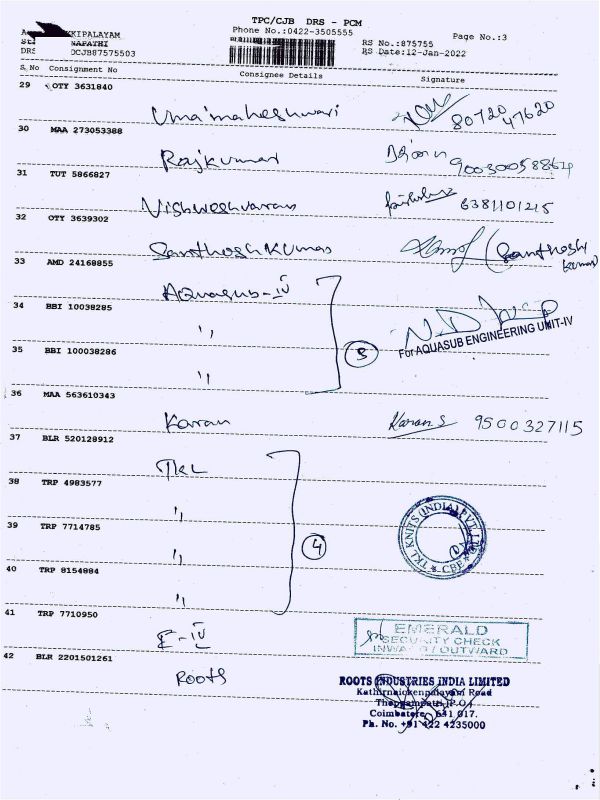 TPC/CJB DRS - PCM
Phone No.:0422-3505555
Page No.:3
KKIPALAYAM
NAPATHI
RS No.:875755
DRS DCJB87575503
RS Date:12-Jan-2022
S.No Consignment No Consignee Details Signature
29 OTY 3631840
Umamaheshwari 80720 47620
30 MAA 273053388
Rajkumar
31 TUT 5866827
Vishweshvaran 6381101215
32 OTY 3639302
Santhosh Kumar (Santhosh Kumar)
33 AMD 24168855
Aquasub-IV
34 BBI 10038285
"
For AQUASUB ENGINEERING UNIT-IV
35 BBI 100038286
" 3
36 MAA 563610343
Karan Karan S 9500327115
37 BLR 520128912
TKL
38 TRP 4983577
"
TKL KNITS (INDIA) PVT LTD
CBE
39 TRP 7714785
" 4
40 TRP 8154884
"
41 TRP 7710950
E-IV
EMERALD
SECURITY CHECK
INWARD / OUTWARD
42 BLR 2201501261
Roots
ROOTS INDUSTRIES INDIA LIMITED
Kathirnaickenpalayam Road
Thoppampatti P.O.
Coimbatore 641 017.
Ph. No. +91 422 4235000